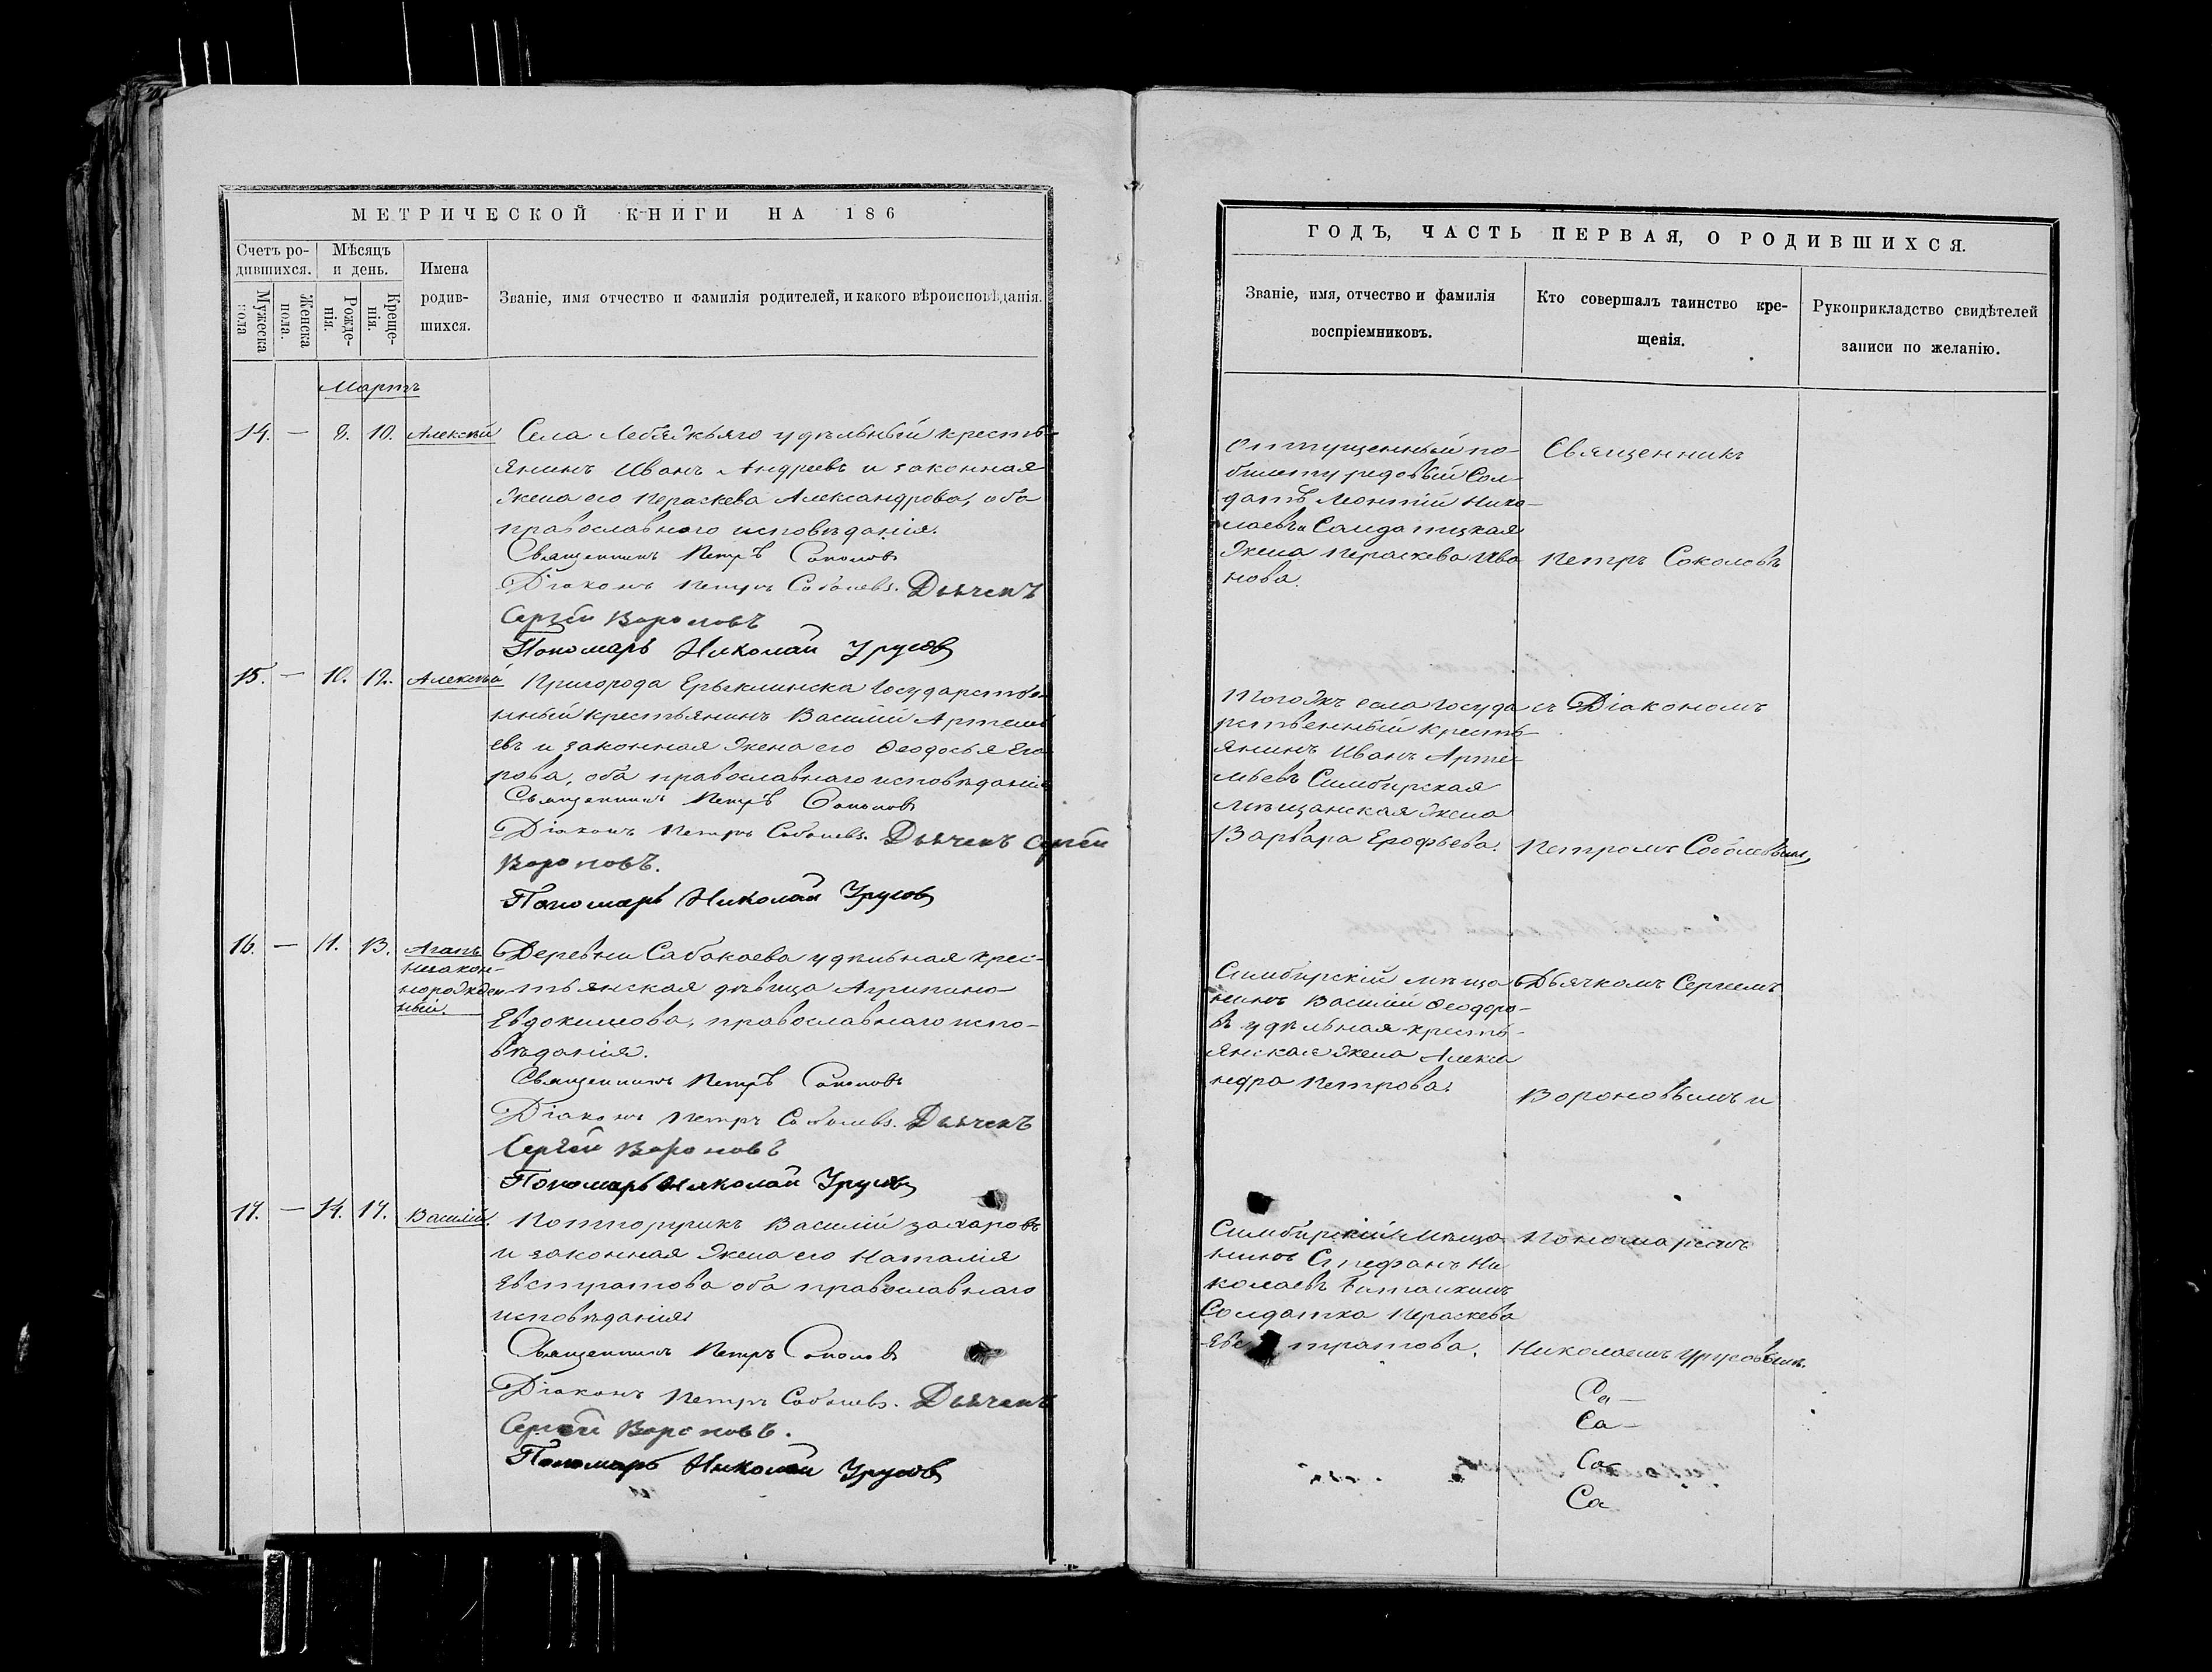 МЕТРИЧЕСКОЙ КНИГИ НА 186
Счетъ ро-
дившихся.
Мѣсяцъ
и день.
Имена
родив-
шихся.
Званіе, имя отчество и фамилія родителей, и какого вѣроисповѣданія.
Мужеска
пола
Женска
пола.
Рожде-
нія.
Креще-
нія.
Мартъ
14. — 8. 10. Алексѣй Села Лебяжьяго удѣльный кресть-
янинъ Иванъ Андреевъ и законная
жена его Параскева Александрова, оба
православнаго исповѣданія.
Священникъ Петръ Соколовъ
Діаконъ Петръ Соболевъ. Дьячекъ
Сергей Вороновъ
Пономарь Николай Урусовъ
15. — 10. 12. Алексѣй Пригорода Ерыклинска Государствен-
ный крестьянинъ Василій Артемь
евъ и законная жена его Ѳеодосья Его
рова, оба православнаго исповѣданія
Священникъ Петръ Соколовъ
Діаконъ Петръ Соболевъ. Дьячекъ Сергей
Вороновъ.
Пономарь Николай Урусовъ
16. — 11. 13. Агапъ Деревни Сабакаева удѣльная крес-
незакон-
норожден
ный.
тьянская дѣвица Агрипина
Евдокимова, православнаго испо-
вѣданія.
Священникъ Петръ Соколовъ
Діаконъ Петръ Соболевъ. Дьячекъ
Сергей Вороновъ
Пономарь Николай Урусовъ
17. — 14. 17. Василій. Потпоручикъ Василій Захаровъ
и законная жена его Наталія
Евстратова оба православнаго
исповѣданія
Священникъ Петръ Соколовъ
Діаконъ Петръ Соболевъ. Дьячекъ
Сергей Вороновъ.
Пономарь Николай Урусовъ
ГОДЪ, ЧАСТЬ ПЕРВАЯ, О РОДИВШИХСЯ.
Званіе, имя, отчество и фамилія
воспріемниковъ.
Кто совершалъ таинство кре-
щенія.
Рукоприкладство свидѣтелей
записи по желанію.
Отпущенный по
билету рядовый Сол-
датъ Леонтій Нико-
лаевъ и Салдатская
жена Параскева Ива
нова.
Священникъ
Петръ Соколовъ
Тогожъ села Госуда
рственный кресть-
янинъ Иванъ Арте-
мьевъ Симбирская
мѣщанская жена
Варвара Ерофѣева.
съ Діакономъ
Петромъ Соболевымъ,
Симбирскій мѣща
нинъ Василій Ѳеодоро-
въ удѣльная кресть-
янская жена Алекса
ндра Петрова.
Дьячкомъ Сергіемъ
Вороновымъ и
Симбирскій мѣща
нинъ Стефанъ Ни
колаевъ
Солдатка Параскева
Евстратова.
Пономаремъ
Николаемъ Урусовымъ.
Са—
Са—
Са
Са